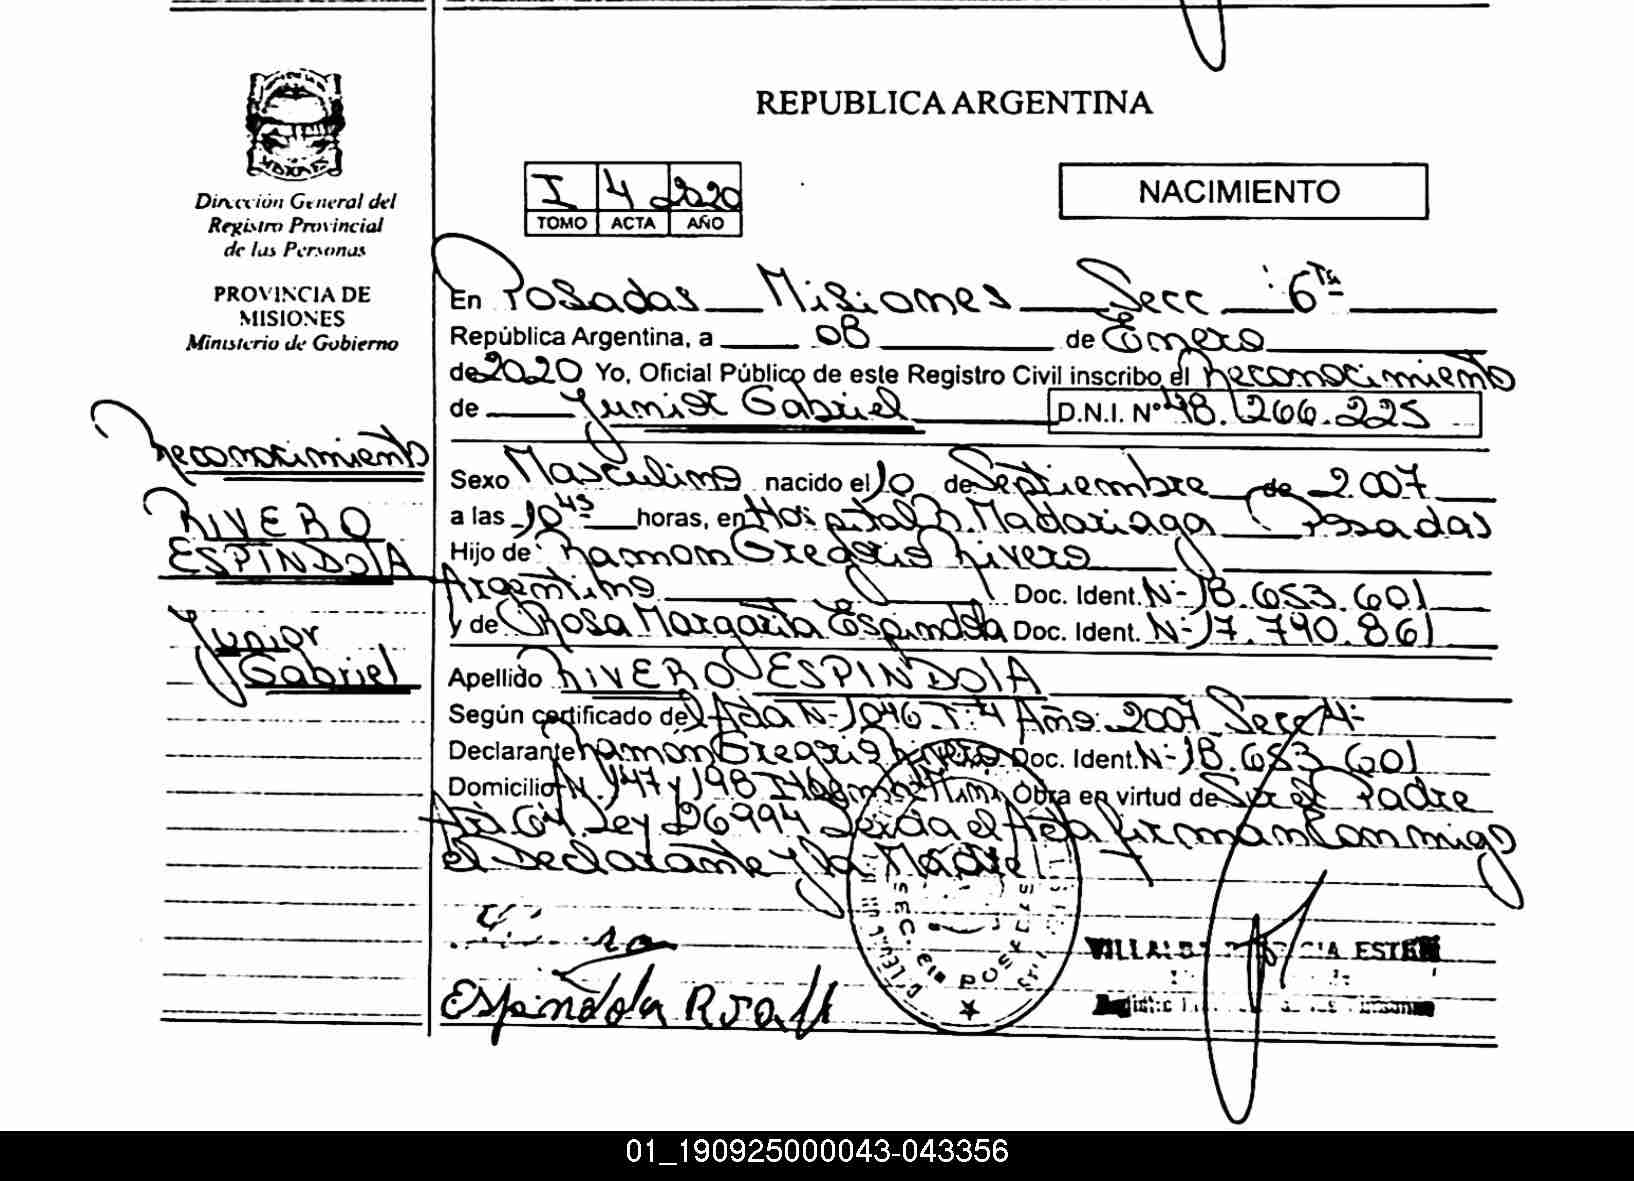 REPUBLICA ARGENTINA
Dirección General del
Registro Provincial
de las Personas
PROVINCIA DE
MISIONES
Ministerio de Gobierno
I 4 2020
TOMO ACTA AÑO
NACIMIENTO
En Posadas Misiones Secc 6ta
República Argentina, a 08 de Enero
de 2020 Yo, Oficial Público de este Registro Civil inscribo el Reconocimiento
de Junior Gabriel D.N.I. Nº 48.266.225
Reconocimiento
RIVERO
ESPINDOLA
Junior
Gabriel
Sexo Masculino nacido el 10 de Septiembre de 2007
a las 10 45 horas, en Hospital R. Madariaga Posadas
Hijo de Ramon Gregorio Rivero
Argentino Doc. Ident. N- 18.653.601
y de Rosa Margarita Espindola Doc. Ident. N- 17.790.861
Apellido RIVERO ESPINDOLA
Según certificado de Acta N- 1046 T- 4 Año 2007 Secc 4-
Declarante Ramon Gregorio Rivero Doc. Ident. N- 18.653.601
Domicilio 147 y 198 Obra en virtud de Ser el Padre
Ley 26994 Leida el Acta firman Conmigo
el Declarante y la Madre
Espindola Rosa M
SEC. 6ta POSADAS
01_190925000043-043356